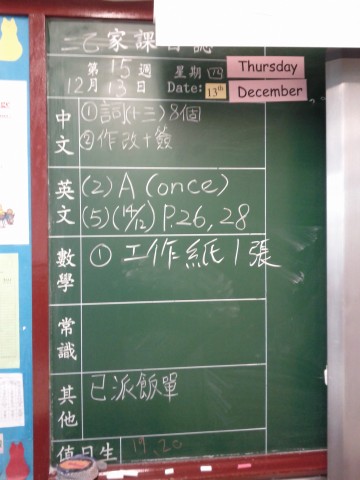 二乙家課日誌
第15週 星期四 Thursday
12月13日 Date: 13th December
中文 ①詞(十三)8個
②作改+簽
英文 (2) A (once)
(5)(14/12) P.26, 28
數學 ① 工作紙1張
常識
其他 已派飯單
值日生 19, 20